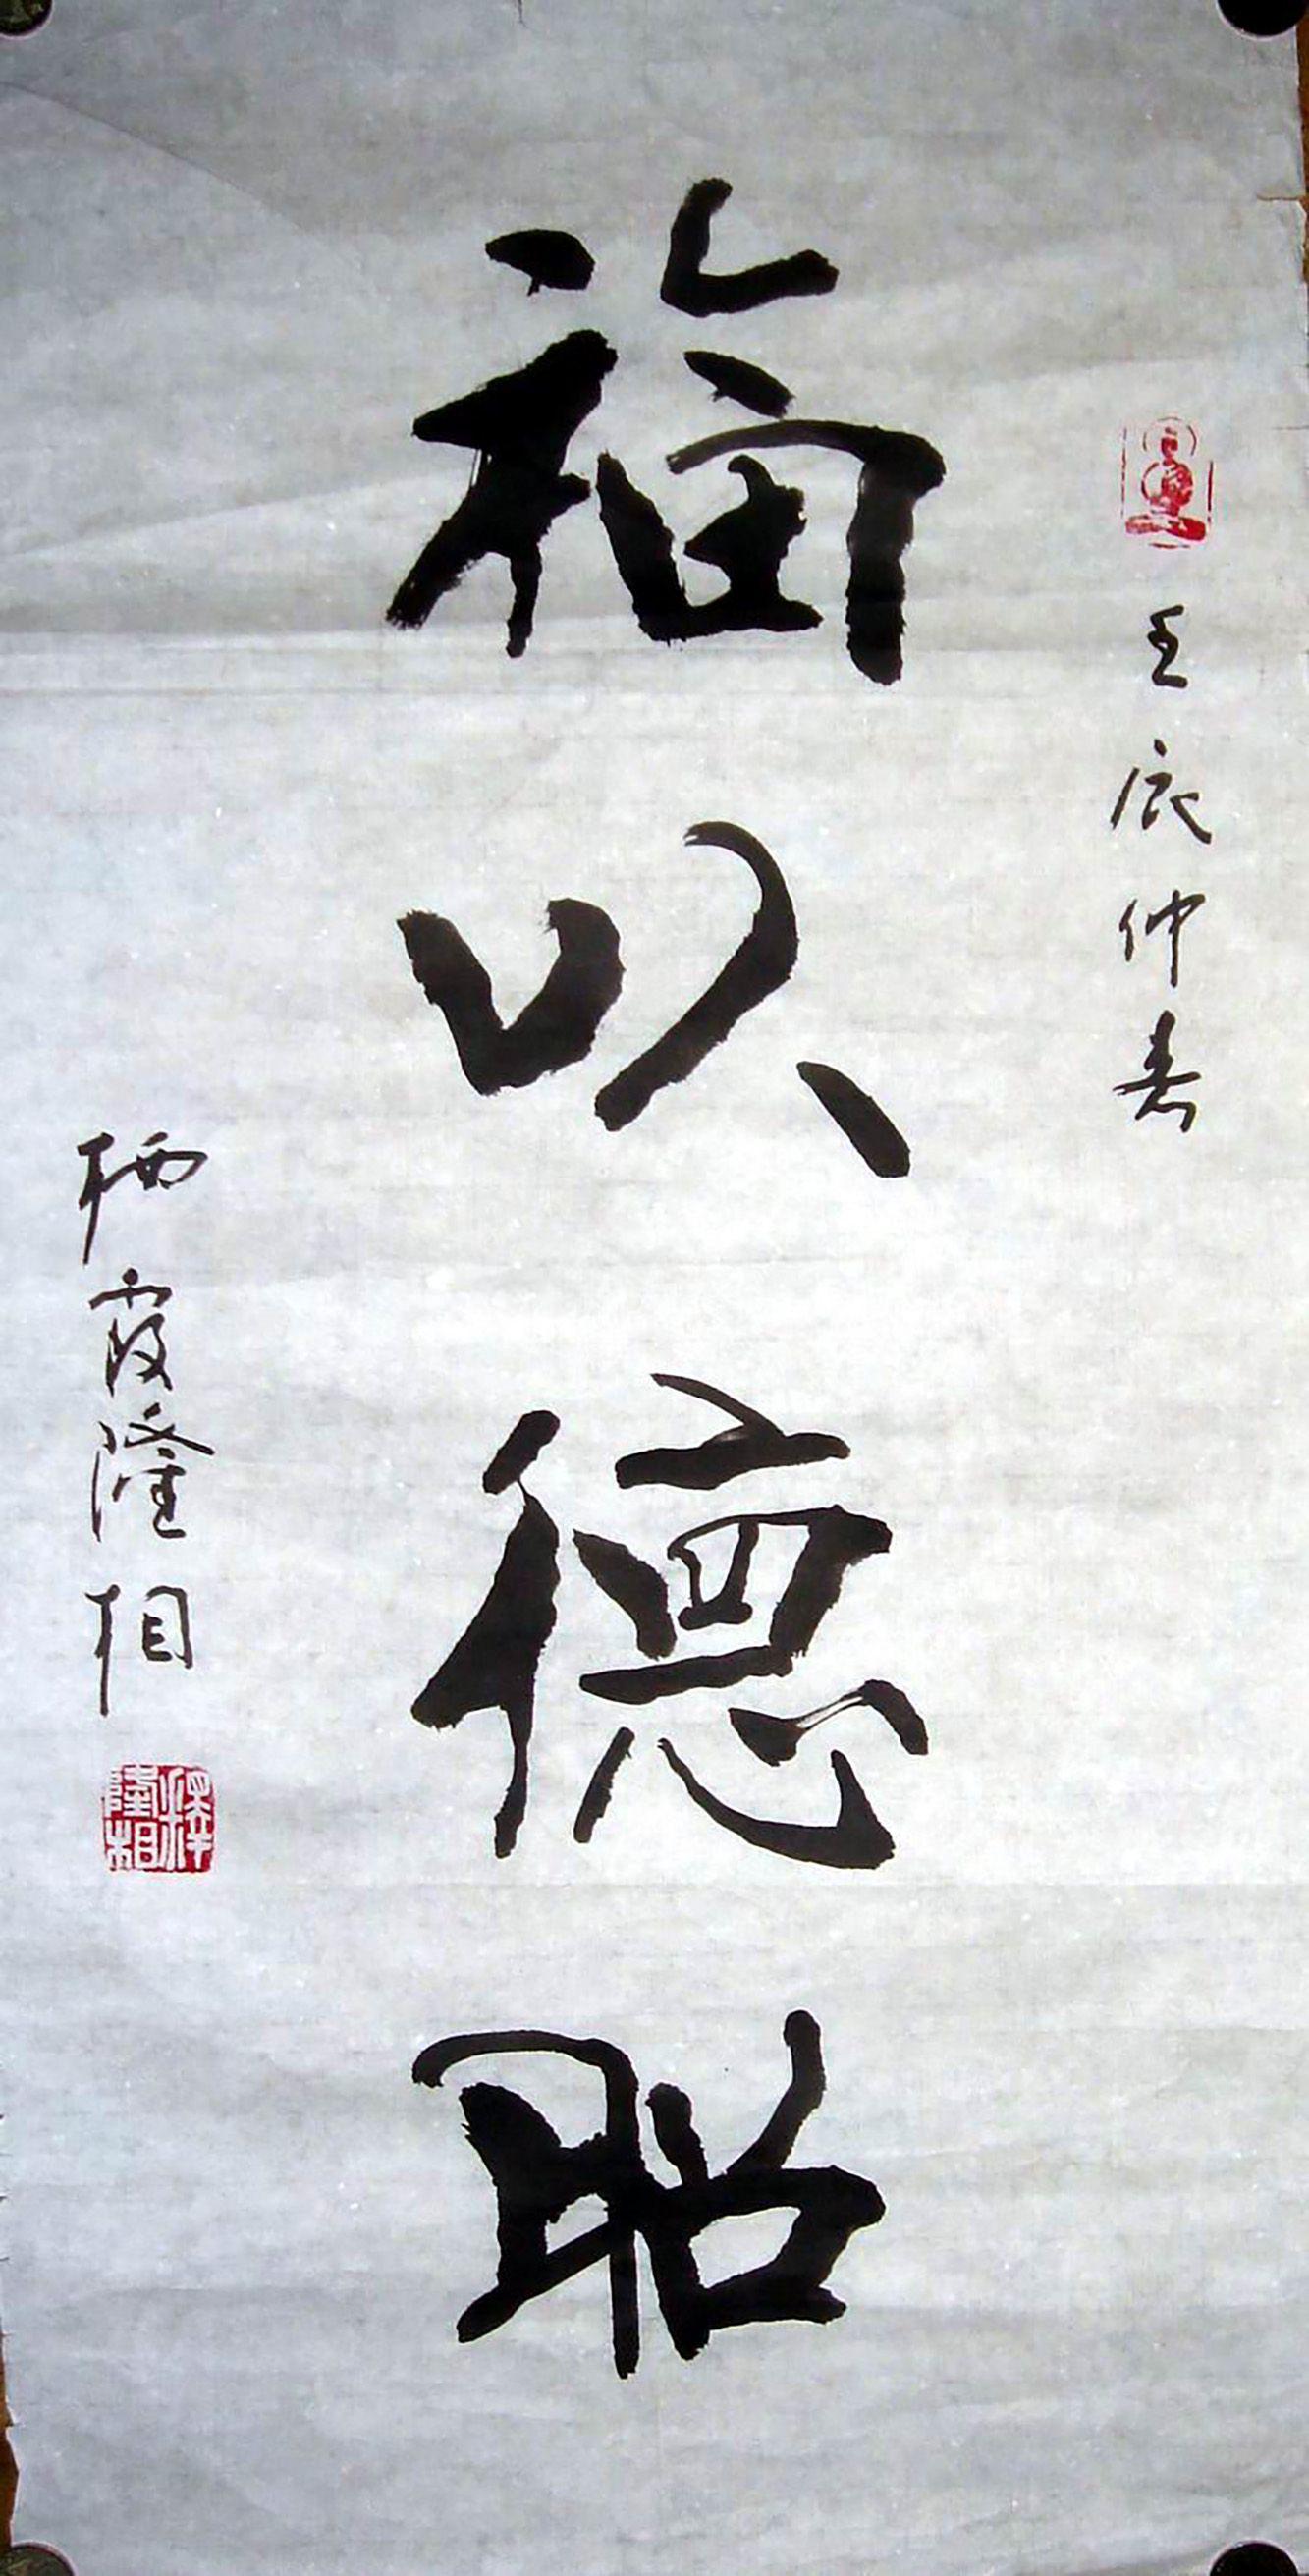 壬辰仲春
福以德昭
栖霞隆相
釋隆相